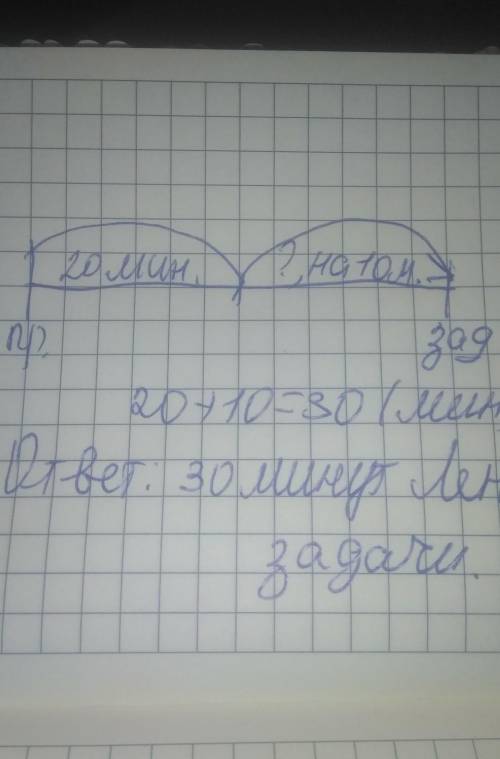 20 мин. ?, на 10 м.
пр. зад
20+10=30 (мин
Ответ: 30 минут Лен
задачи.